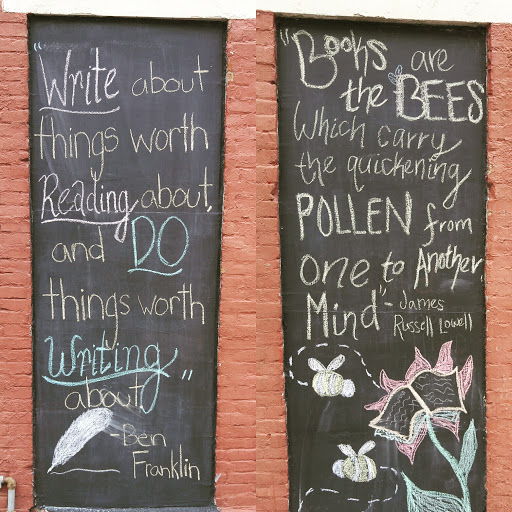 "Write about
things worth
Reading about,
and DO
things worth
Writing
about"
-Ben
Franklin
"Books are
the BEES
Which carry
the quickening
POLLEN from
one to Another
Mind"- James
Russell Lowell